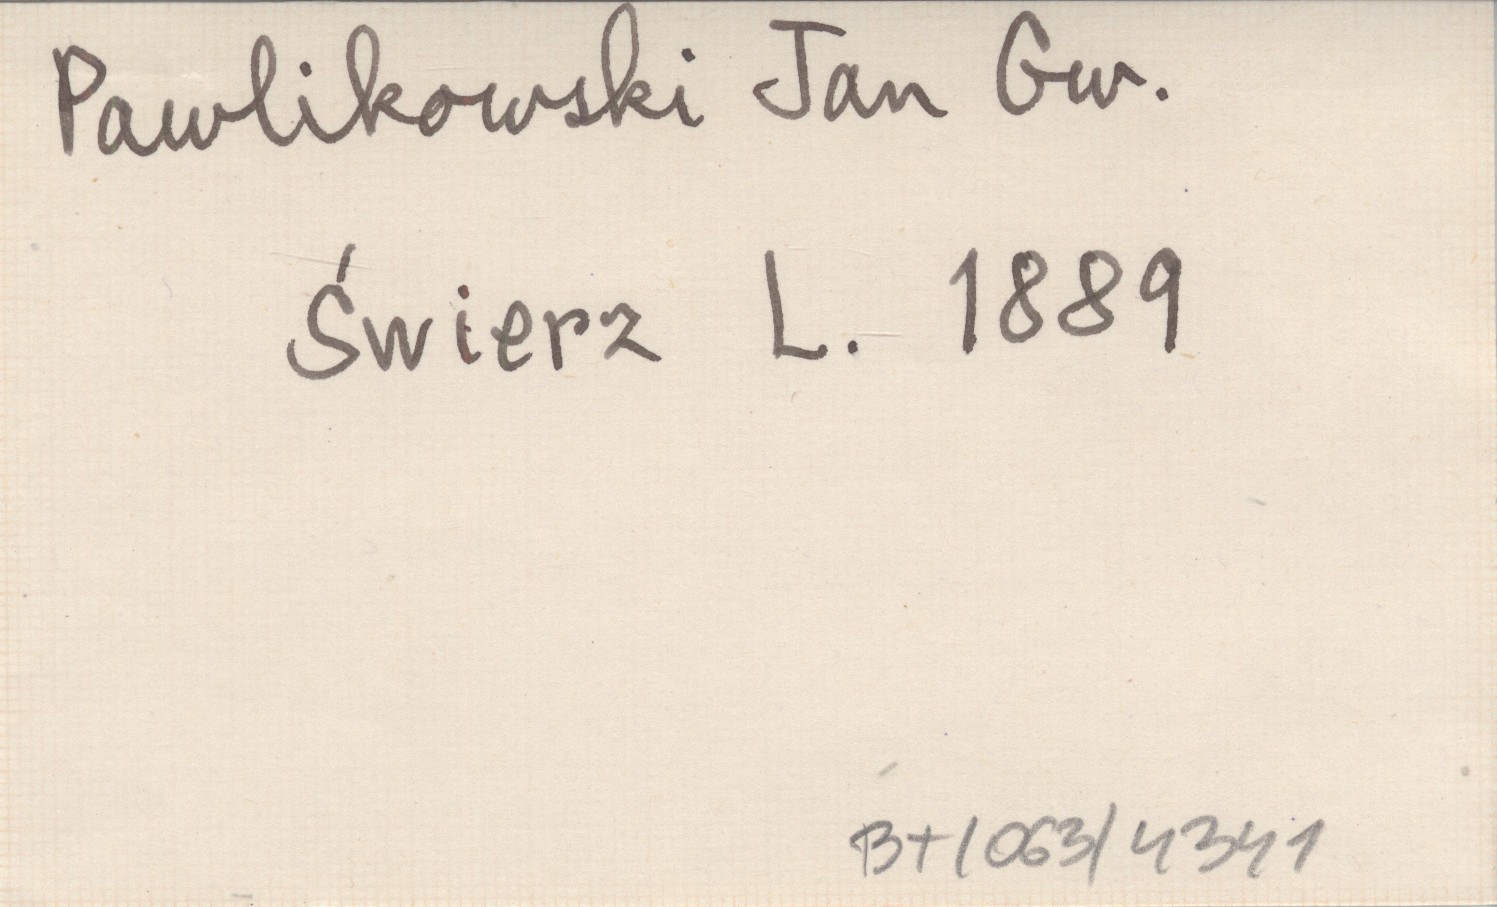 Pawlikowski Jan Gw.
Świerz L. 1889
B+/063/4341